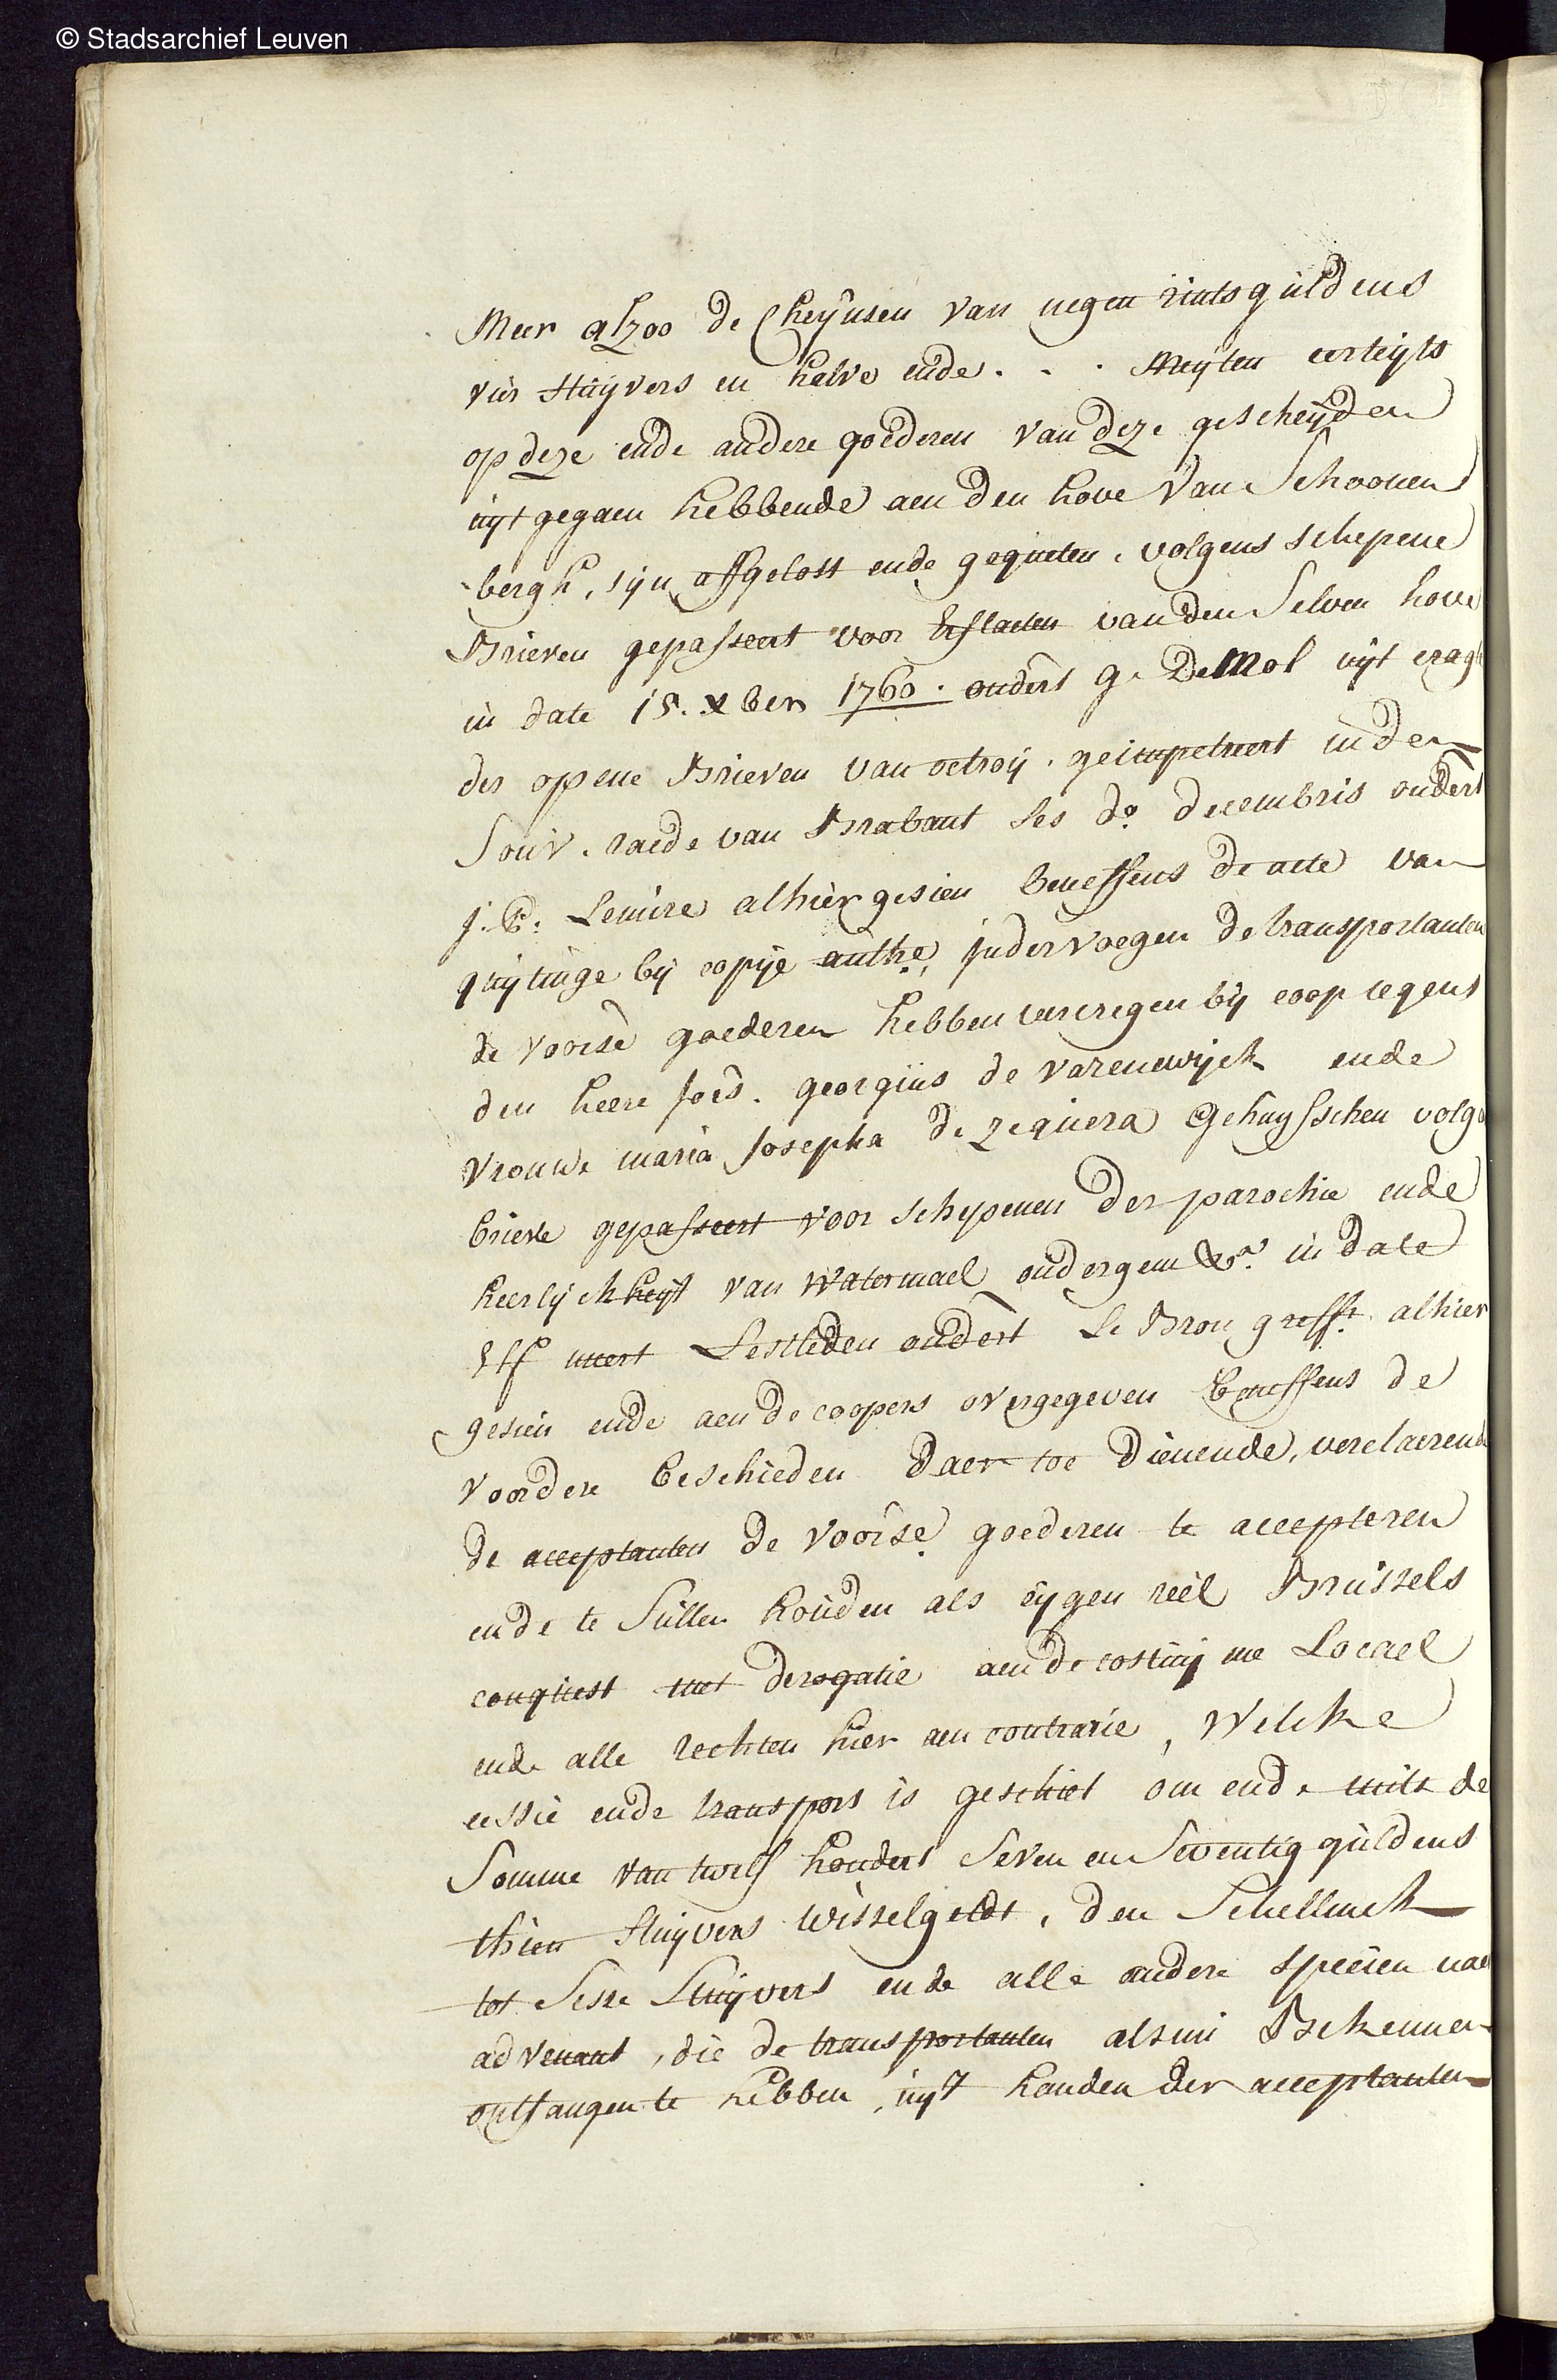 © Stadsarchief Leuven
Meer alzoo de Cheijnsen van negen rintsguldens
vier stuijvers en halve ende . . . Meijten eertijts
op deze ende andere goederen van deze gescheijden
uijtgegaen hebbende aen den hove van Schoonen
bergh, sijn affgelost ende gequeten, volgens schepene
Brieven gepasseert voor Erflaeten van den selven hove
in date 15. xber 1760. ondert g. De Mol uijt cragt
der opene Brieven van octroij, geimpetreert in den
Souv. raede van Brabant ses do decembris ondert
j. b. Lemire alhier gesien beneffens de acte van
quijtinge bij copije authe, inder voegen de transportanten
de voorse goederen hebben vercregen bij coop tegens
den heere joes. georgius de varenewijck ende
vrouwe maria josepha de zequera gehuijsschen volgs
brieve gepasseert voor schepenen der parochie ende
heerlijckheijt van Watermael oudergem &a. in date
Elf meert Lestleden ondert Le Brou greffr. alhier
gesien ende aen de coopers overgegeven beneffens de
voordere bescheeden daer toe dienende, verclaerende
de acceptanten de voorse goederen te accepteren
ende te sullen houden als eijgen reël Brussels
conquest met derogatie aen de costuijme Locael
ende alle rechten hier aen contrarie, Welcke
cessie ende transport is geschiet om ende mits de
Somme van twelf hondert seven en seventig guldens
thien stuijvers wisselgeldt, den Schellinck
tot sesse stuijvers ende alle andere specien naer
advenant, die de transportanten alsnu Bekennen
ontfangen te hebben, uijt handen der acceptanten